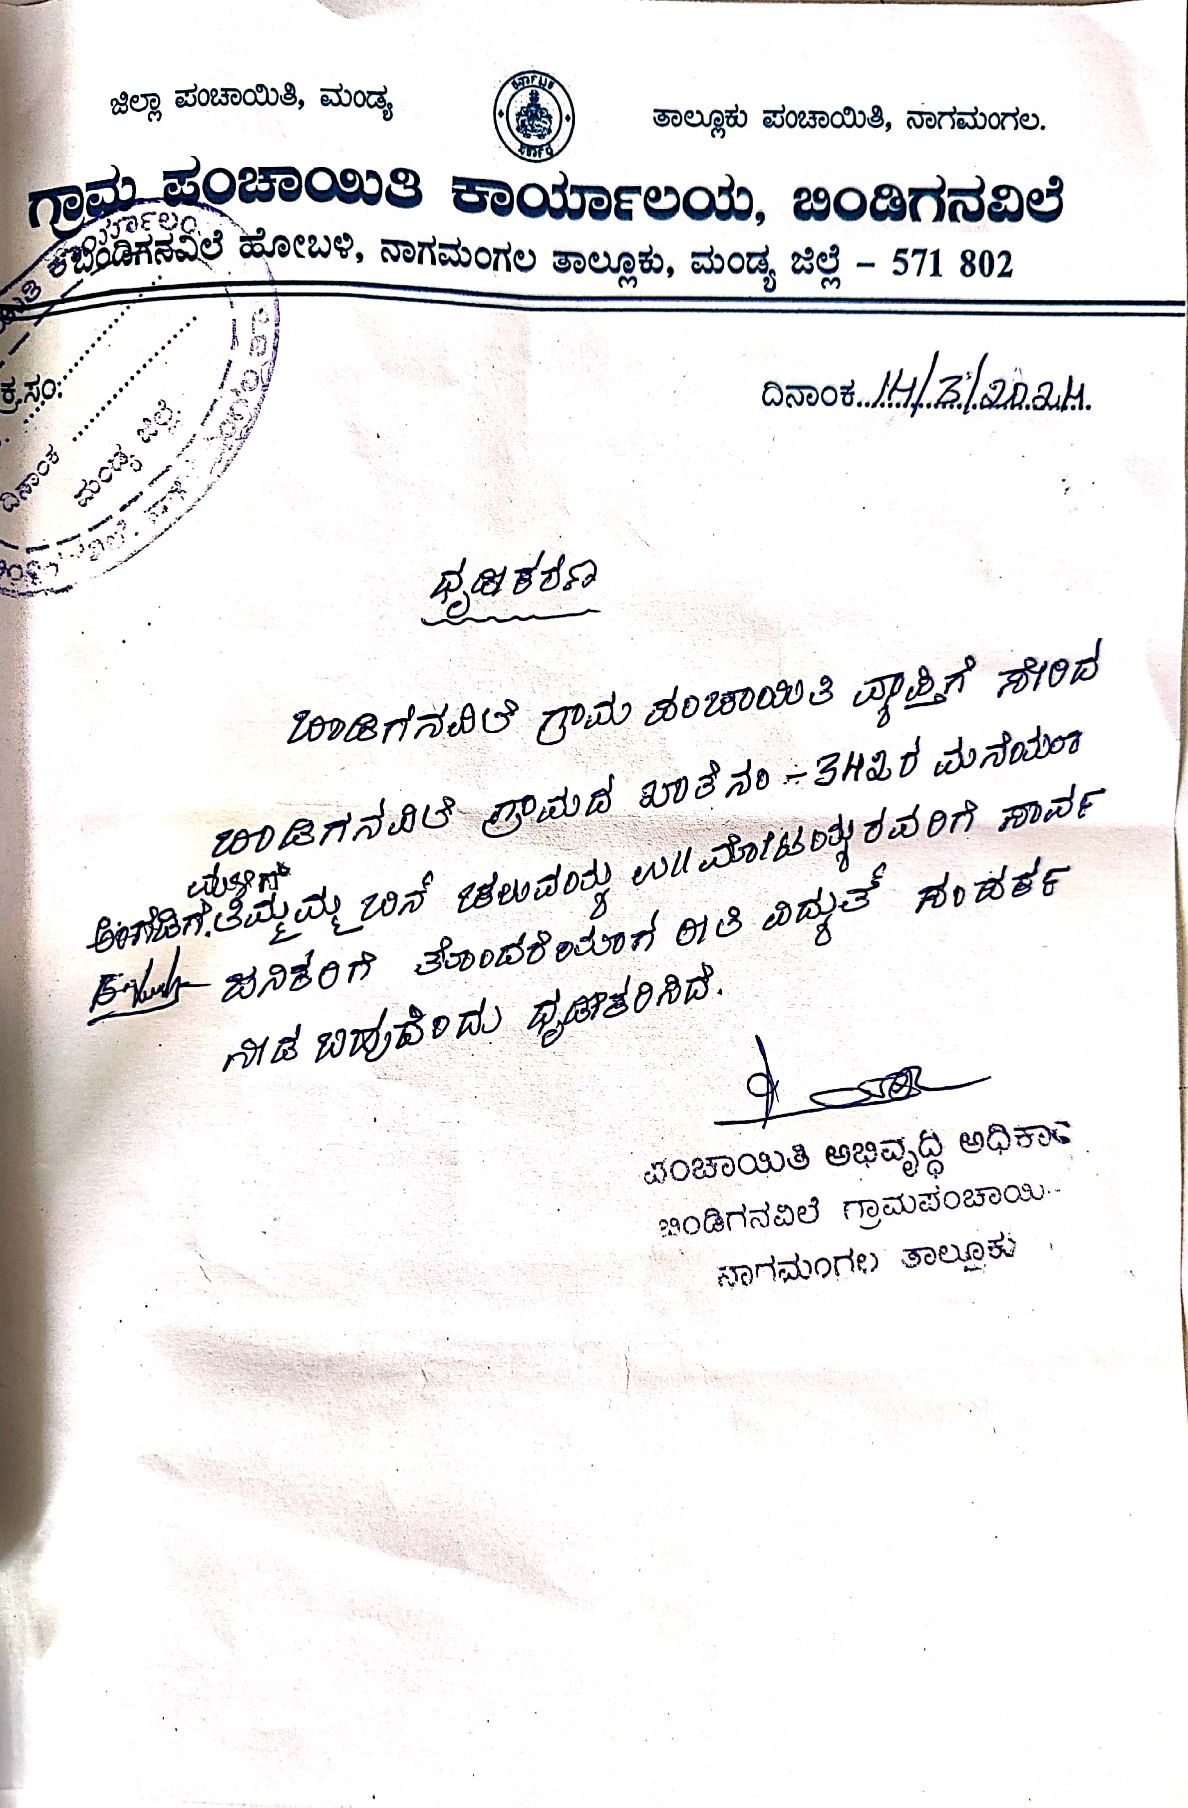 ಜಿಲ್ಲಾ ಪಂಚಾಯಿತಿ, ಮಂಡ್ಯ
ಕರ್ನಾಟಕ ಸರ್ಕಾರ
ತಾಲ್ಲೂಕು ಪಂಚಾಯಿತಿ, ನಾಗಮಂಗಲ.
ಗ್ರಾಮ ಪಂಚಾಯಿತಿ ಕಾರ್ಯಾಲಯ, ಬಿಂಡಿಗನವಿಲೆ
ಬಿಂಡಿಗನವಿಲೆ ಹೋಬಳಿ, ನಾಗಮಂಗಲ ತಾಲ್ಲೂಕು, ಮಂಡ್ಯ ಜಿಲ್ಲೆ – 571 802
ಕ್ರ.ಸಂ:
ದಿನಾಂಕ 14/3/2024
ದಿನಾಂಕ
ಮಂಡ್ಯ ಜಿಲ್ಲೆ.
ಧೃಡೀಕರಣ
ಬಿಂಡಿಗನವಿಲೆ ಗ್ರಾಮ ಪಂಚಾಯಿತಿ ವ್ಯಾಪ್ತಿಗೆ ಸೇರಿದ
ಬಿಂಡಿಗನವಿಲೆ ಗ್ರಾಮದ ಖಾತೆ ನಂ - 342ರ ಮನೆಯ
ತಿಮ್ಮಮ್ಮ ಬಿನ್ ಚಲುವಯ್ಯ ಉ॥ ಮೋಟಯ್ಯ ರವರಿಗೆ ಸಾರ್ವ
ಜನಿಕರಿಗೆ ತೊಂದರೆಯಾಗ ರೀತಿ ವಿದ್ಯುತ್ ಸಂಪರ್ಕ
ನೀಡ ಬಹುದೆಂದು ಧೃಡೀಕರಿಸಿದೆ.
ಪಂಚಾಯಿತಿ ಅಭಿವೃದ್ಧಿ ಅಧಿಕಾರಿ
ಬಿಂಡಿಗನವಿಲೆ ಗ್ರಾಮಪಂಚಾಯಿ
ನಾಗಮಂಗಲ ತಾಲ್ಲೂಕು